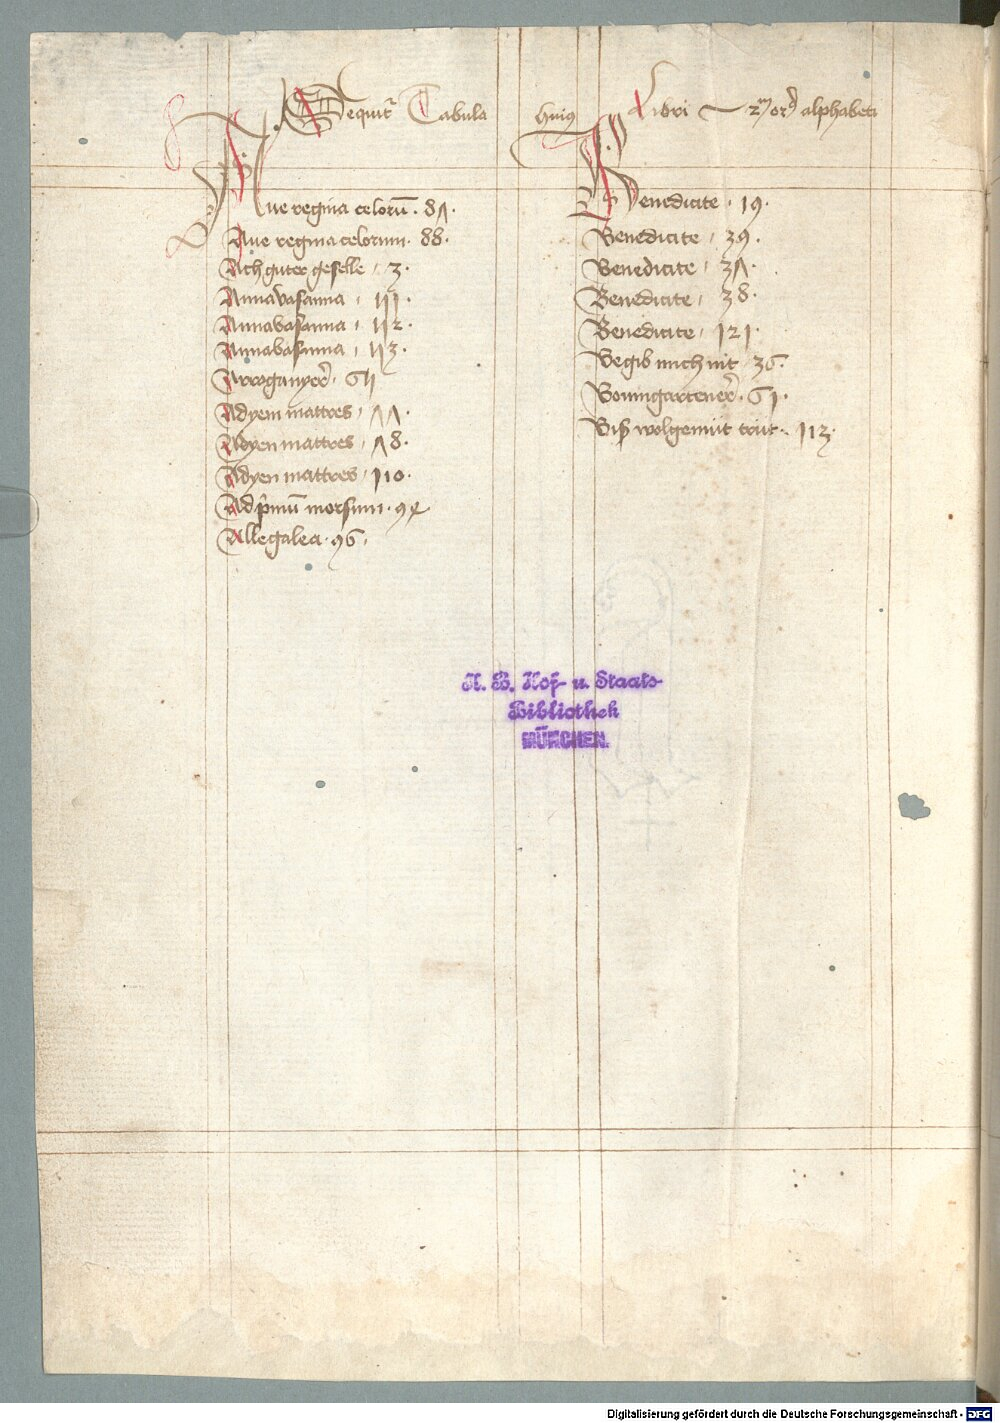 Sequit͛ Tabula huiꝰ Libri 2m̄ ord̄ alphabeti
Aue regina celorū · 87 ·
Aue regina celorum · 88 ·
Ach guter geselle · 3 ·
Annavasanna · 111 ·
Annabasanna · 112 ·
Annabasanna · 113 ·
Adyem mattres · 77 ·
Adyen mattres · 78 ·
Adyen mattres · 110 ·
Ad p̄mū morsum · 94
Allegalea · 96 ·
Benedicite · 19 ·
Benedicite · 39 ·
Benedicite · 37 ·
Benedicite · 38 ·
Benedicite · 121 ·
Begib mich nit · 36 ·
Bomgartener̄ · 61 ·
Biß wolgemut trut · 113 ·
K. B. Hof- u. Staats-
Bibliothek
MÜNCHEN.
Digitalisierung gefördert durch die Deutsche Forschungsgemeinschaft - DFG